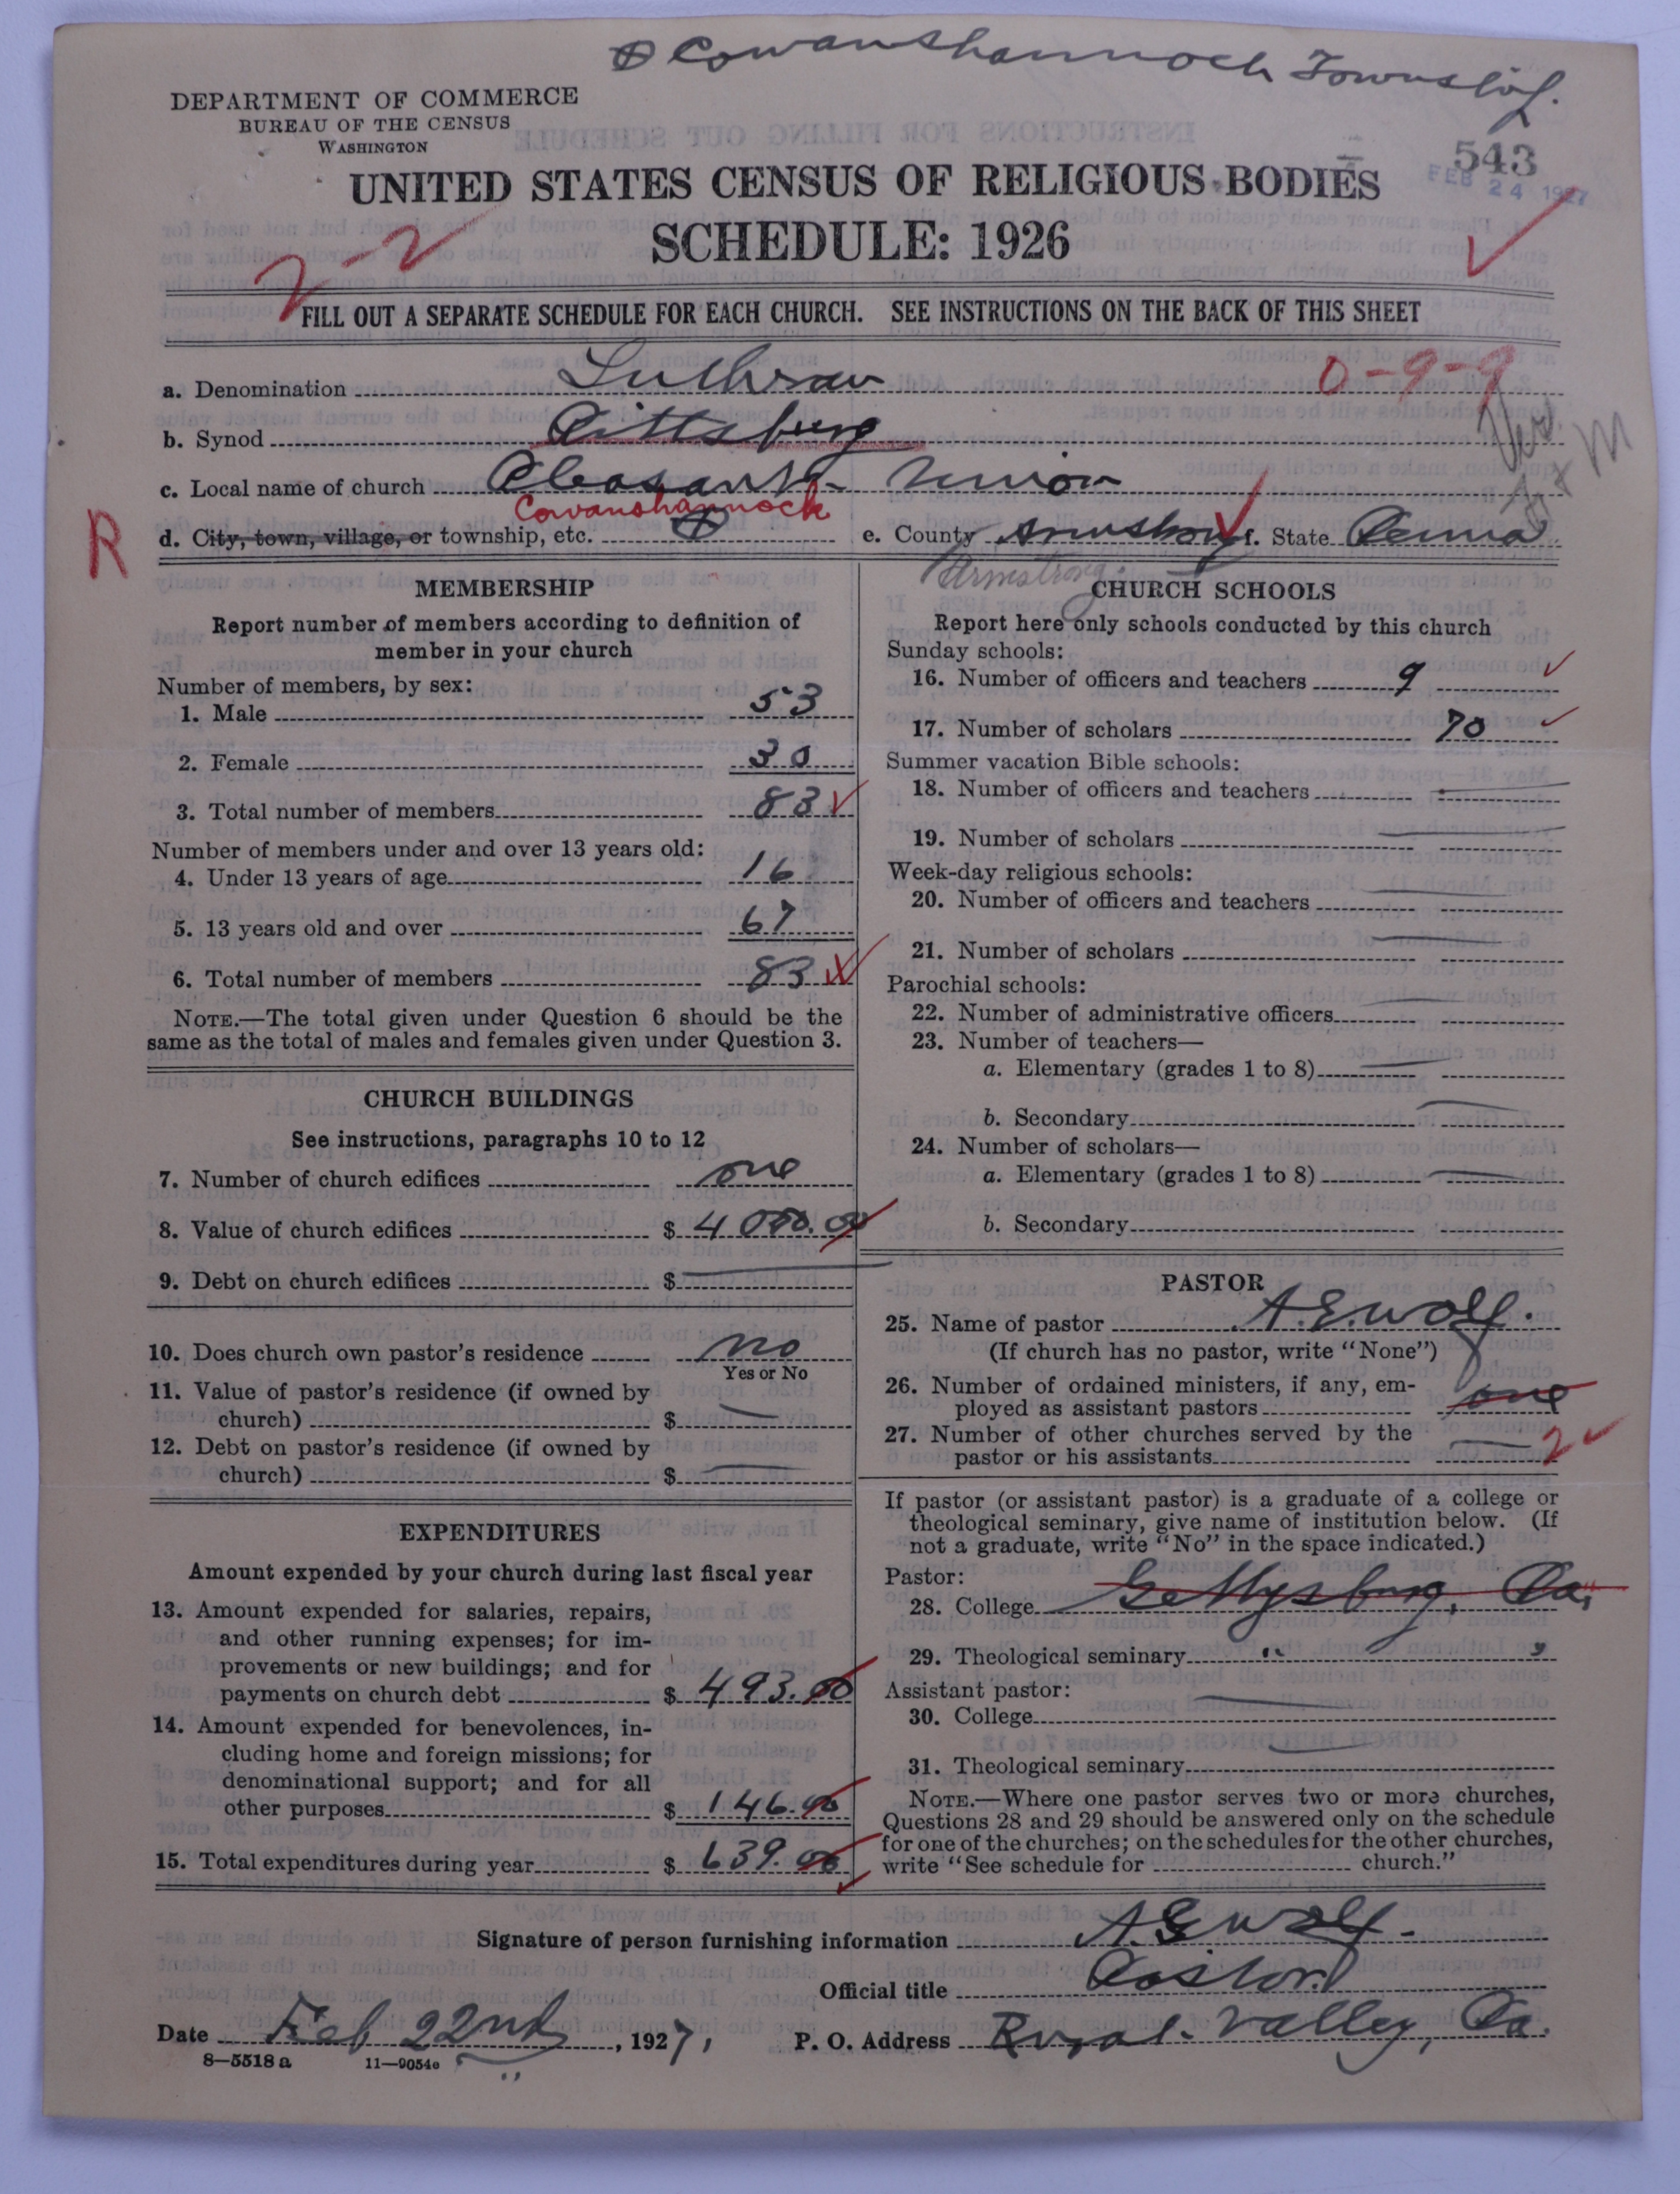 ⊕ Cowanshannock Township.
DEPARTMENT OF COMMERCE
BUREAU OF THE CENSUS
WASHINGTON
543
FEB 24 1927
UNITED STATES CENSUS OF RELIGIOUS BODIES
SCHEDULE: 1926
2-2
FILL OUT A SEPARATE SCHEDULE FOR EACH CHURCH. SEE INSTRUCTIONS ON THE BACK OF THIS SHEET
a. Denomination Lutheran 0-9-9
b. Synod Pittsburg
c. Local name of church Pleasant Union
Cowanshannock
R d. City, town, village, or township, etc. ⊕ e. County Armstrong f. State Penna
Armstrong.
MEMBERSHIP
Report number of members according to definition of
member in your church
Number of members, by sex:
1. Male 53
2. Female 30
3. Total number of members 83
Number of members under and over 13 years old:
4. Under 13 years of age 16
5. 13 years old and over 67
6. Total number of members 83
NOTE.—The total given under Question 6 should be the
same as the total of males and females given under Question 3.
CHURCH BUILDINGS
See instructions, paragraphs 10 to 12
7. Number of church edifices one
8. Value of church edifices $ 4000.00
9. Debt on church edifices $
10. Does church own pastor's residence no
Yes or No
11. Value of pastor's residence (if owned by
church) $
12. Debt on pastor's residence (if owned by
church) $
EXPENDITURES
Amount expended by your church during last fiscal year
13. Amount expended for salaries, repairs,
and other running expenses; for im-
provements or new buildings; and for
payments on church debt $ 493.00
14. Amount expended for benevolences, in-
cluding home and foreign missions; for
denominational support; and for all
other purposes $ 146.00
15. Total expenditures during year $ 639.00
CHURCH SCHOOLS
Report here only schools conducted by this church
Sunday schools:
16. Number of officers and teachers 9
17. Number of scholars 70
Summer vacation Bible schools:
18. Number of officers and teachers
19. Number of scholars
Week-day religious schools:
20. Number of officers and teachers
21. Number of scholars
Parochial schools:
22. Number of administrative officers
23. Number of teachers—
a. Elementary (grades 1 to 8)
b. Secondary
24. Number of scholars—
a. Elementary (grades 1 to 8)
b. Secondary
PASTOR
25. Name of pastor A.E. Wolf.
(If church has no pastor, write "None")
26. Number of ordained ministers, if any, em-
ployed as assistant pastors one
27. Number of other churches served by the
pastor or his assistants 2
If pastor (or assistant pastor) is a graduate of a college or
theological seminary, give name of institution below. (If
not a graduate, write "No" in the space indicated.)
Pastor:
28. College Gettysburg, Pa,
29. Theological seminary " "
Assistant pastor:
30. College
31. Theological seminary
NOTE.—Where one pastor serves two or more churches,
Questions 28 and 29 should be answered only on the schedule
for one of the churches; on the schedules for the other churches,
write "See schedule for church."
Signature of person furnishing information A.E. Wolf.
Official title Pastor
Date Feb 22nd, 1927, P. O. Address Rural Valley, Pa.
8—5518 a 11—9054e